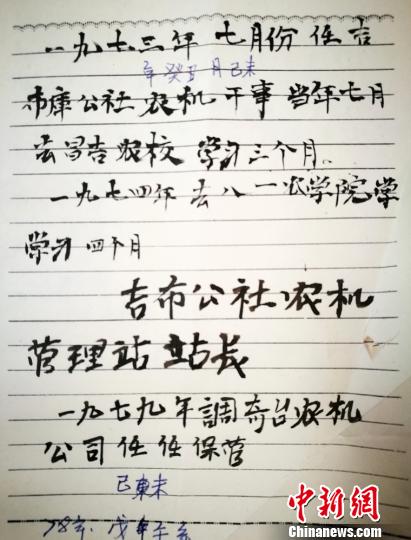 一九七三年七月份任吉
年癸丑 月己未
布康公社农机干事当年七月
去昌吉农校学习三个月。
一九七四年去八一农学院学
学习四个月
吉布公社农机
管理站站长
一九七九年調奇台农机
公司任任保管
己未
78年.戊午年
中新网
Chinanews.com